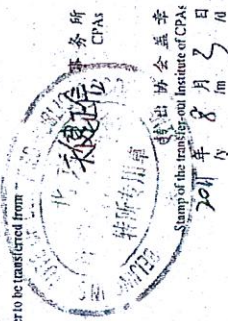 er to be transferred from
事务所
CPAs
转所专用章
BEIJING
转出协会盖章
Stamp of the transfer-out Institute of CPAs
2011 年 8 月 3 日
/y /m /d